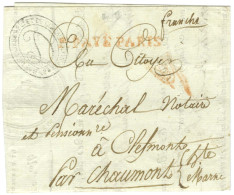 franche
P. PAYÉ PARIS
Au Citoyen
Maréchal Notaire
et Pensionné
à Clefmont
par Chaumont hte
Marne